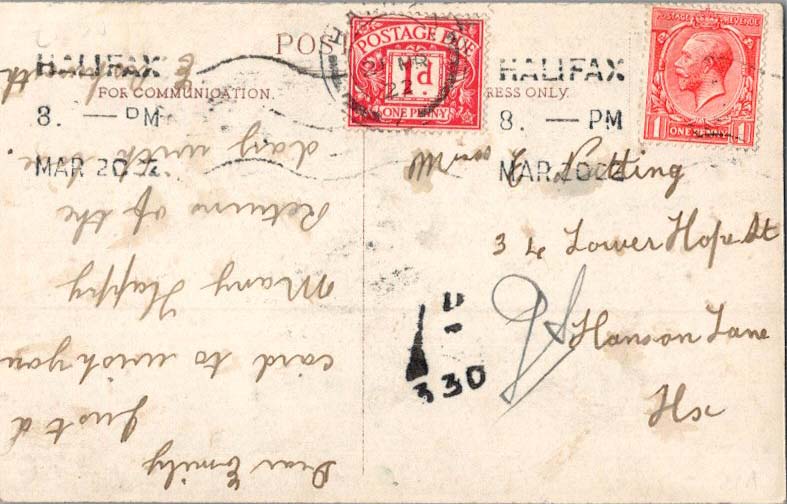 POST
FOR COMMUNICATION.
RESS ONLY.
HALIFAX
8. — PM
MAR 20
HALIFAX
8. — PM
MAR 20
POSTAGE DUE
1d
ONE PENNY
21 MR
22
POSTAGE REVENUE
1 ONE PENNY 1
34 Lower Hope St
Hanson Lane
Hx
1D
330
Dear Emily
Just a
card to wish you
Many Happy
Returns of the
day with